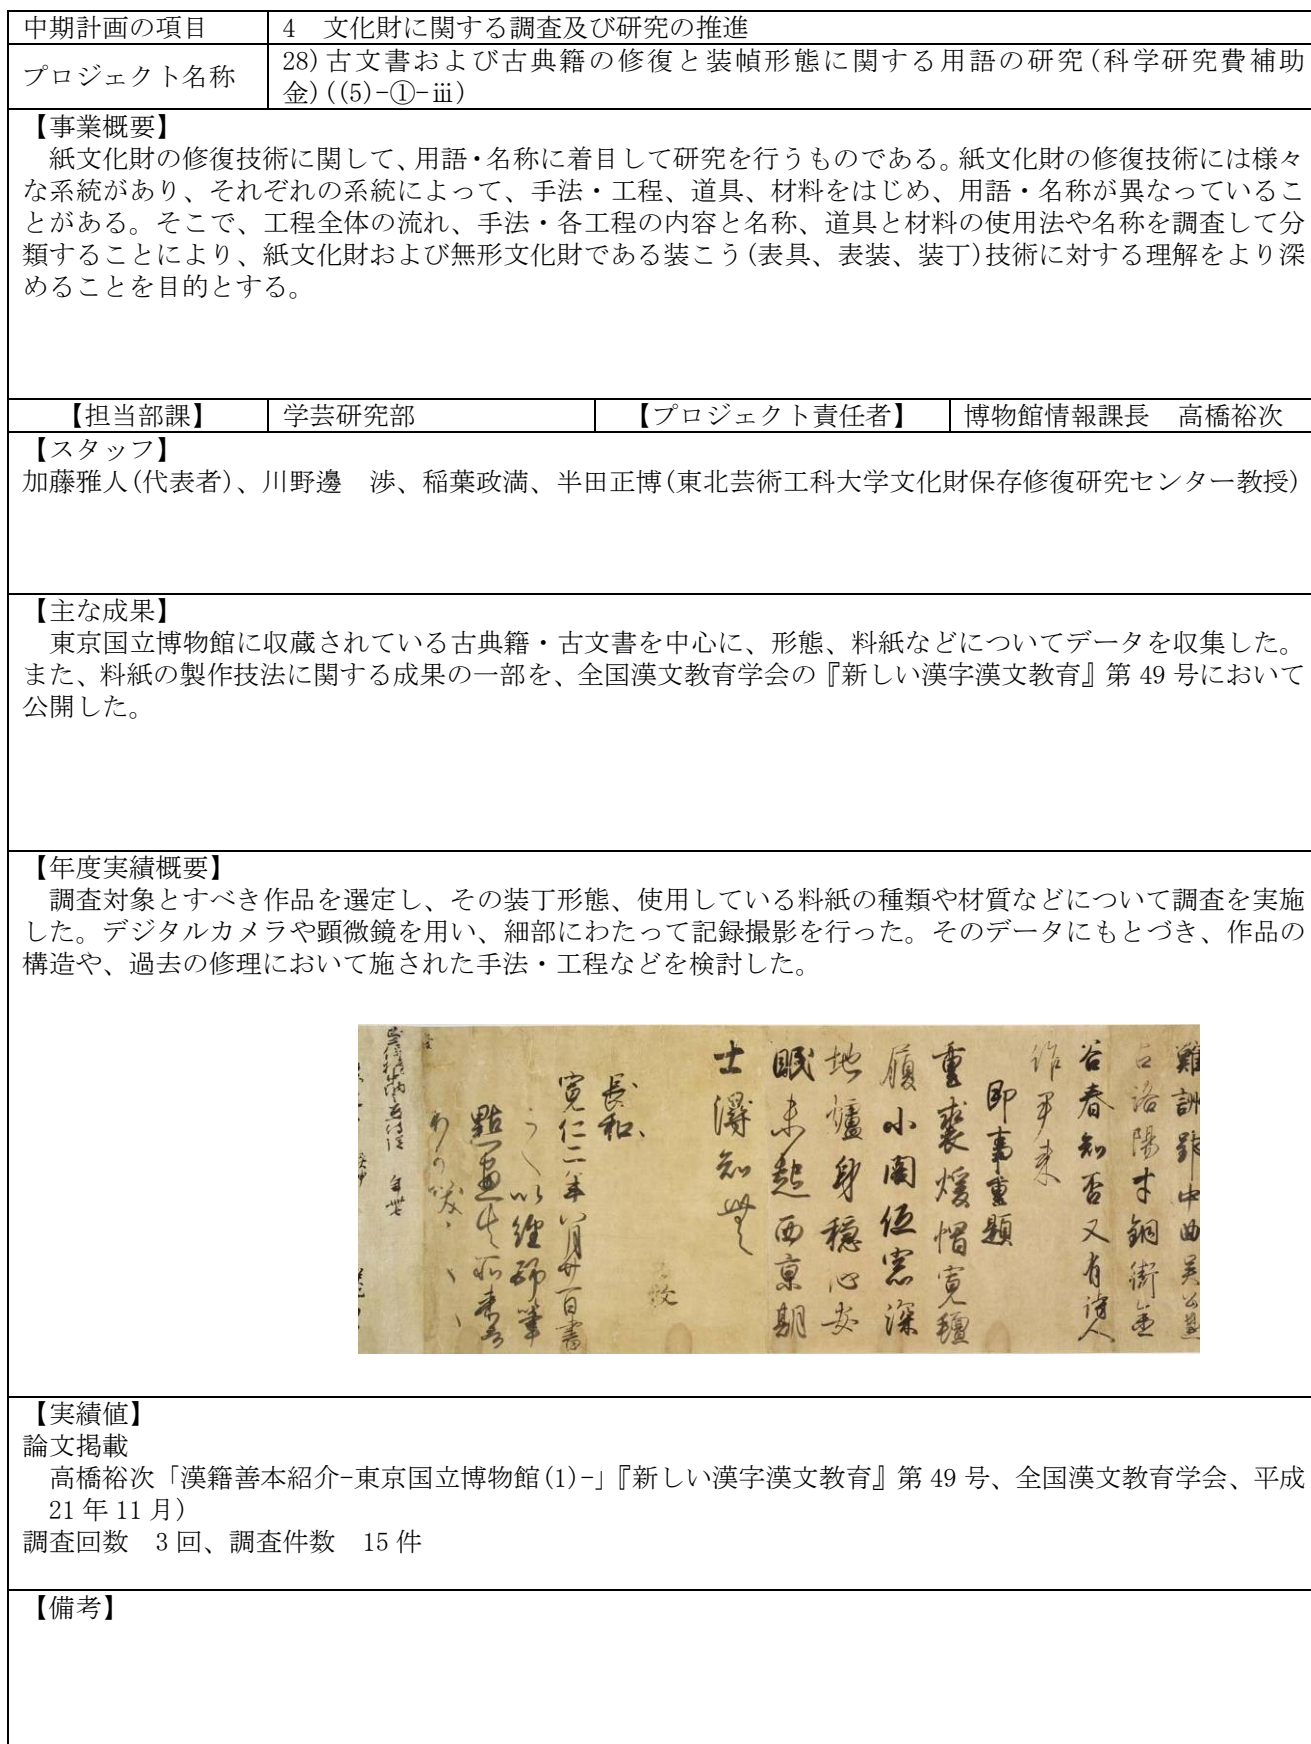 中期計画の項目
4　文化財に関する調査及び研究の推進
プロジェクト名称
28)古文書および古典籍の修復と装幀形態に関する用語の研究(科学研究費補助
金)((5)-①-ⅲ)
【事業概要】
　紙文化財の修復技術に関して、用語・名称に着目して研究を行うものである。紙文化財の修復技術には様々
な系統があり、それぞれの系統によって、手法・工程、道具、材料をはじめ、用語・名称が異なっているこ
とがある。そこで、工程全体の流れ、手法・各工程の内容と名称、道具と材料の使用法や名称を調査して分
類することにより、紙文化財および無形文化財である装こう(表具、表装、装丁)技術に対する理解をより深
めることを目的とする。
【担当部課】
学芸研究部
【プロジェクト責任者】
博物館情報課長　高橋裕次
【スタッフ】
加藤雅人(代表者)、川野邊　渉、稲葉政満、半田正博(東北芸術工科大学文化財保存修復研究センター教授)
【主な成果】
　東京国立博物館に収蔵されている古典籍・古文書を中心に、形態、料紙などについてデータを収集した。
また、料紙の製作技法に関する成果の一部を、全国漢文教育学会の『新しい漢字漢文教育』第 49 号において
公開した。
【年度実績概要】
　調査対象とすべき作品を選定し、その装丁形態、使用している料紙の種類や材質などについて調査を実施
した。デジタルカメラや顕微鏡を用い、細部にわたって記録撮影を行った。そのデータにもとづき、作品の
構造や、過去の修理において施された手法・工程などを検討した。
難訓
古洛陽才銅街金
谷春知否又有詩人
作耳来
即事重題
重裘煖帽寛氈
履小閣低窓深
地爐身穏心安
眠未起西京朝
士得知無
長和、
寛仁二年八月廿一日書
以経師筆
點画失所来者
【実績値】
論文掲載
　高橋裕次「漢籍善本紹介-東京国立博物館(1)-」『新しい漢字漢文教育』第 49 号、全国漢文教育学会、平成
　21 年 11 月)
調査回数　3 回、調査件数　15 件
【備考】